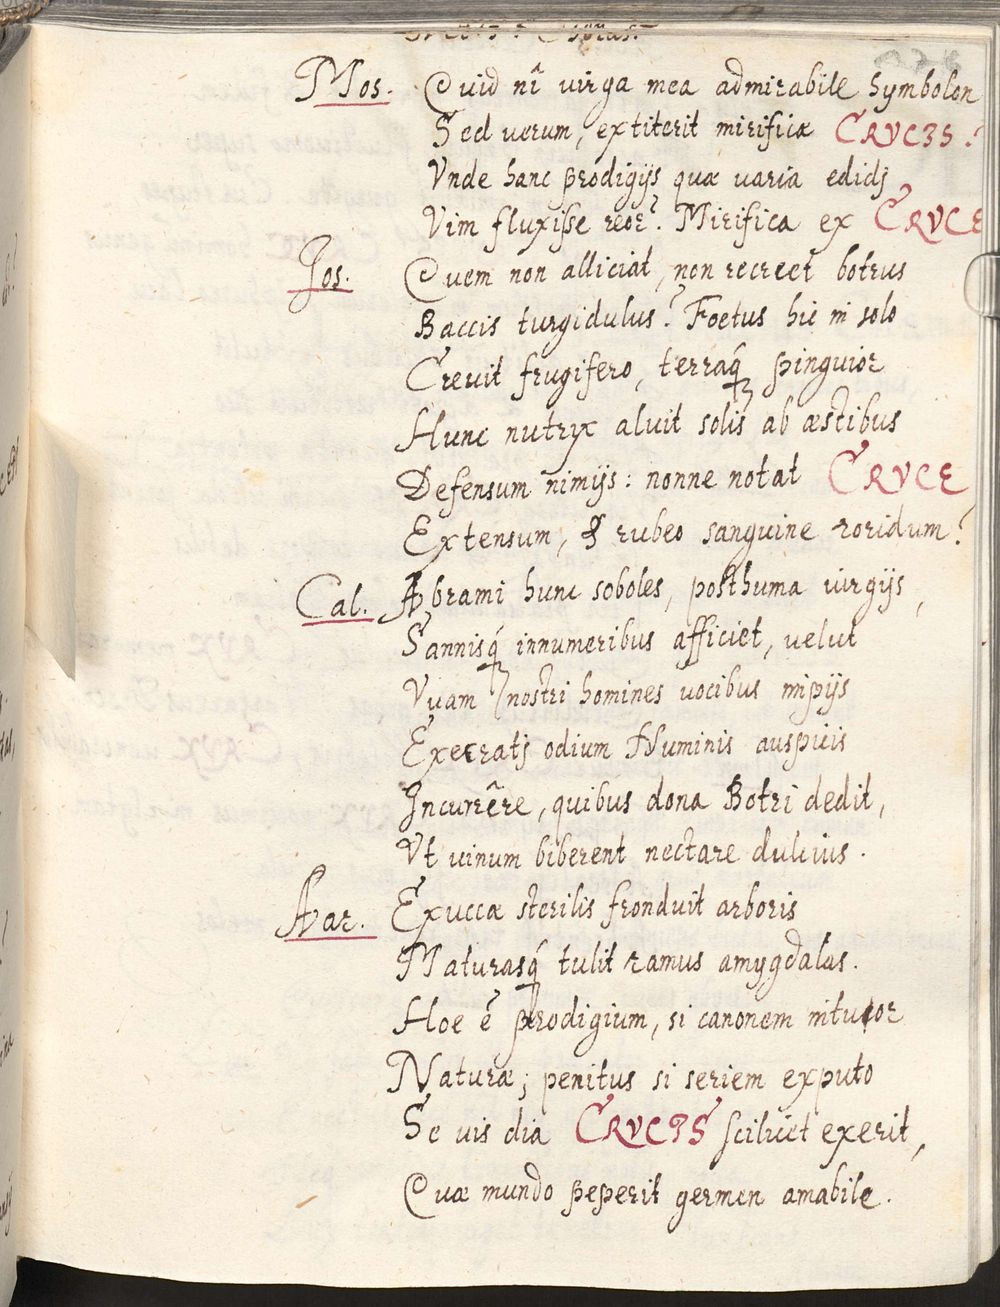 Mos. Quid nî virga mea admirabile Symbolon
Sed uerum, extiterit mirificæ CRVCIS.?
Vnde hanc prodigijs quæ uaria edidj
Vim fluxisse reor? Mirifica ex CRVCE
Jos. Quem non alliciat, non recreet botrus
Baccis turgidulus? Foetus hic in solo
Crevit frugifero, terraq́ pinguior
Hunc nutryx aluit solis ab æstibus
Defensum nimijs: nonne notat CRVCE
Extensum, & rubeo sanguine roridum?
Cal. Abrami hunc soboles, posthuma virgijs,
Sannisq́ innumeribus afficiet, velut
Vuam nostri homines uocibus impijs
Execratj odium Numinis auspicis
Incurrêre, quibus dona Botri dedit,
Vt uinum biberent nectare dulcius.
Aar. Exuccæ sterilis fronduit arboris
Maturasq́ tulit ramus amygdalas.
Hoc ẽ prodigium, si canonem intuor
Naturæ; penitus si seriem exputo
Se uis dia CRVCIS scilicet exerit,
Quæ mundo peperit germen amabile.